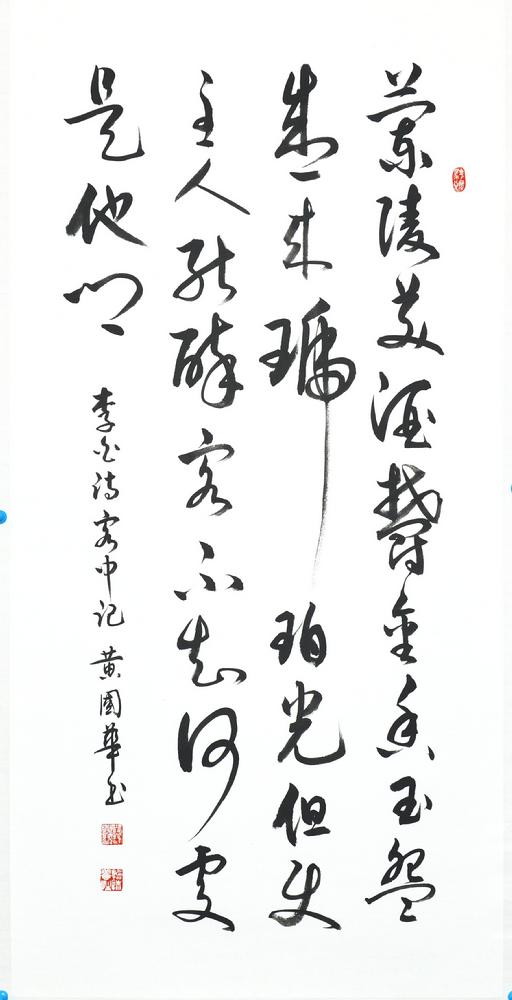 蘭陵美酒鬱金香玉盌
盛来琥珀光但使
主人能醉客不知何處
是他鄉
李白詩客中記 黄國華书